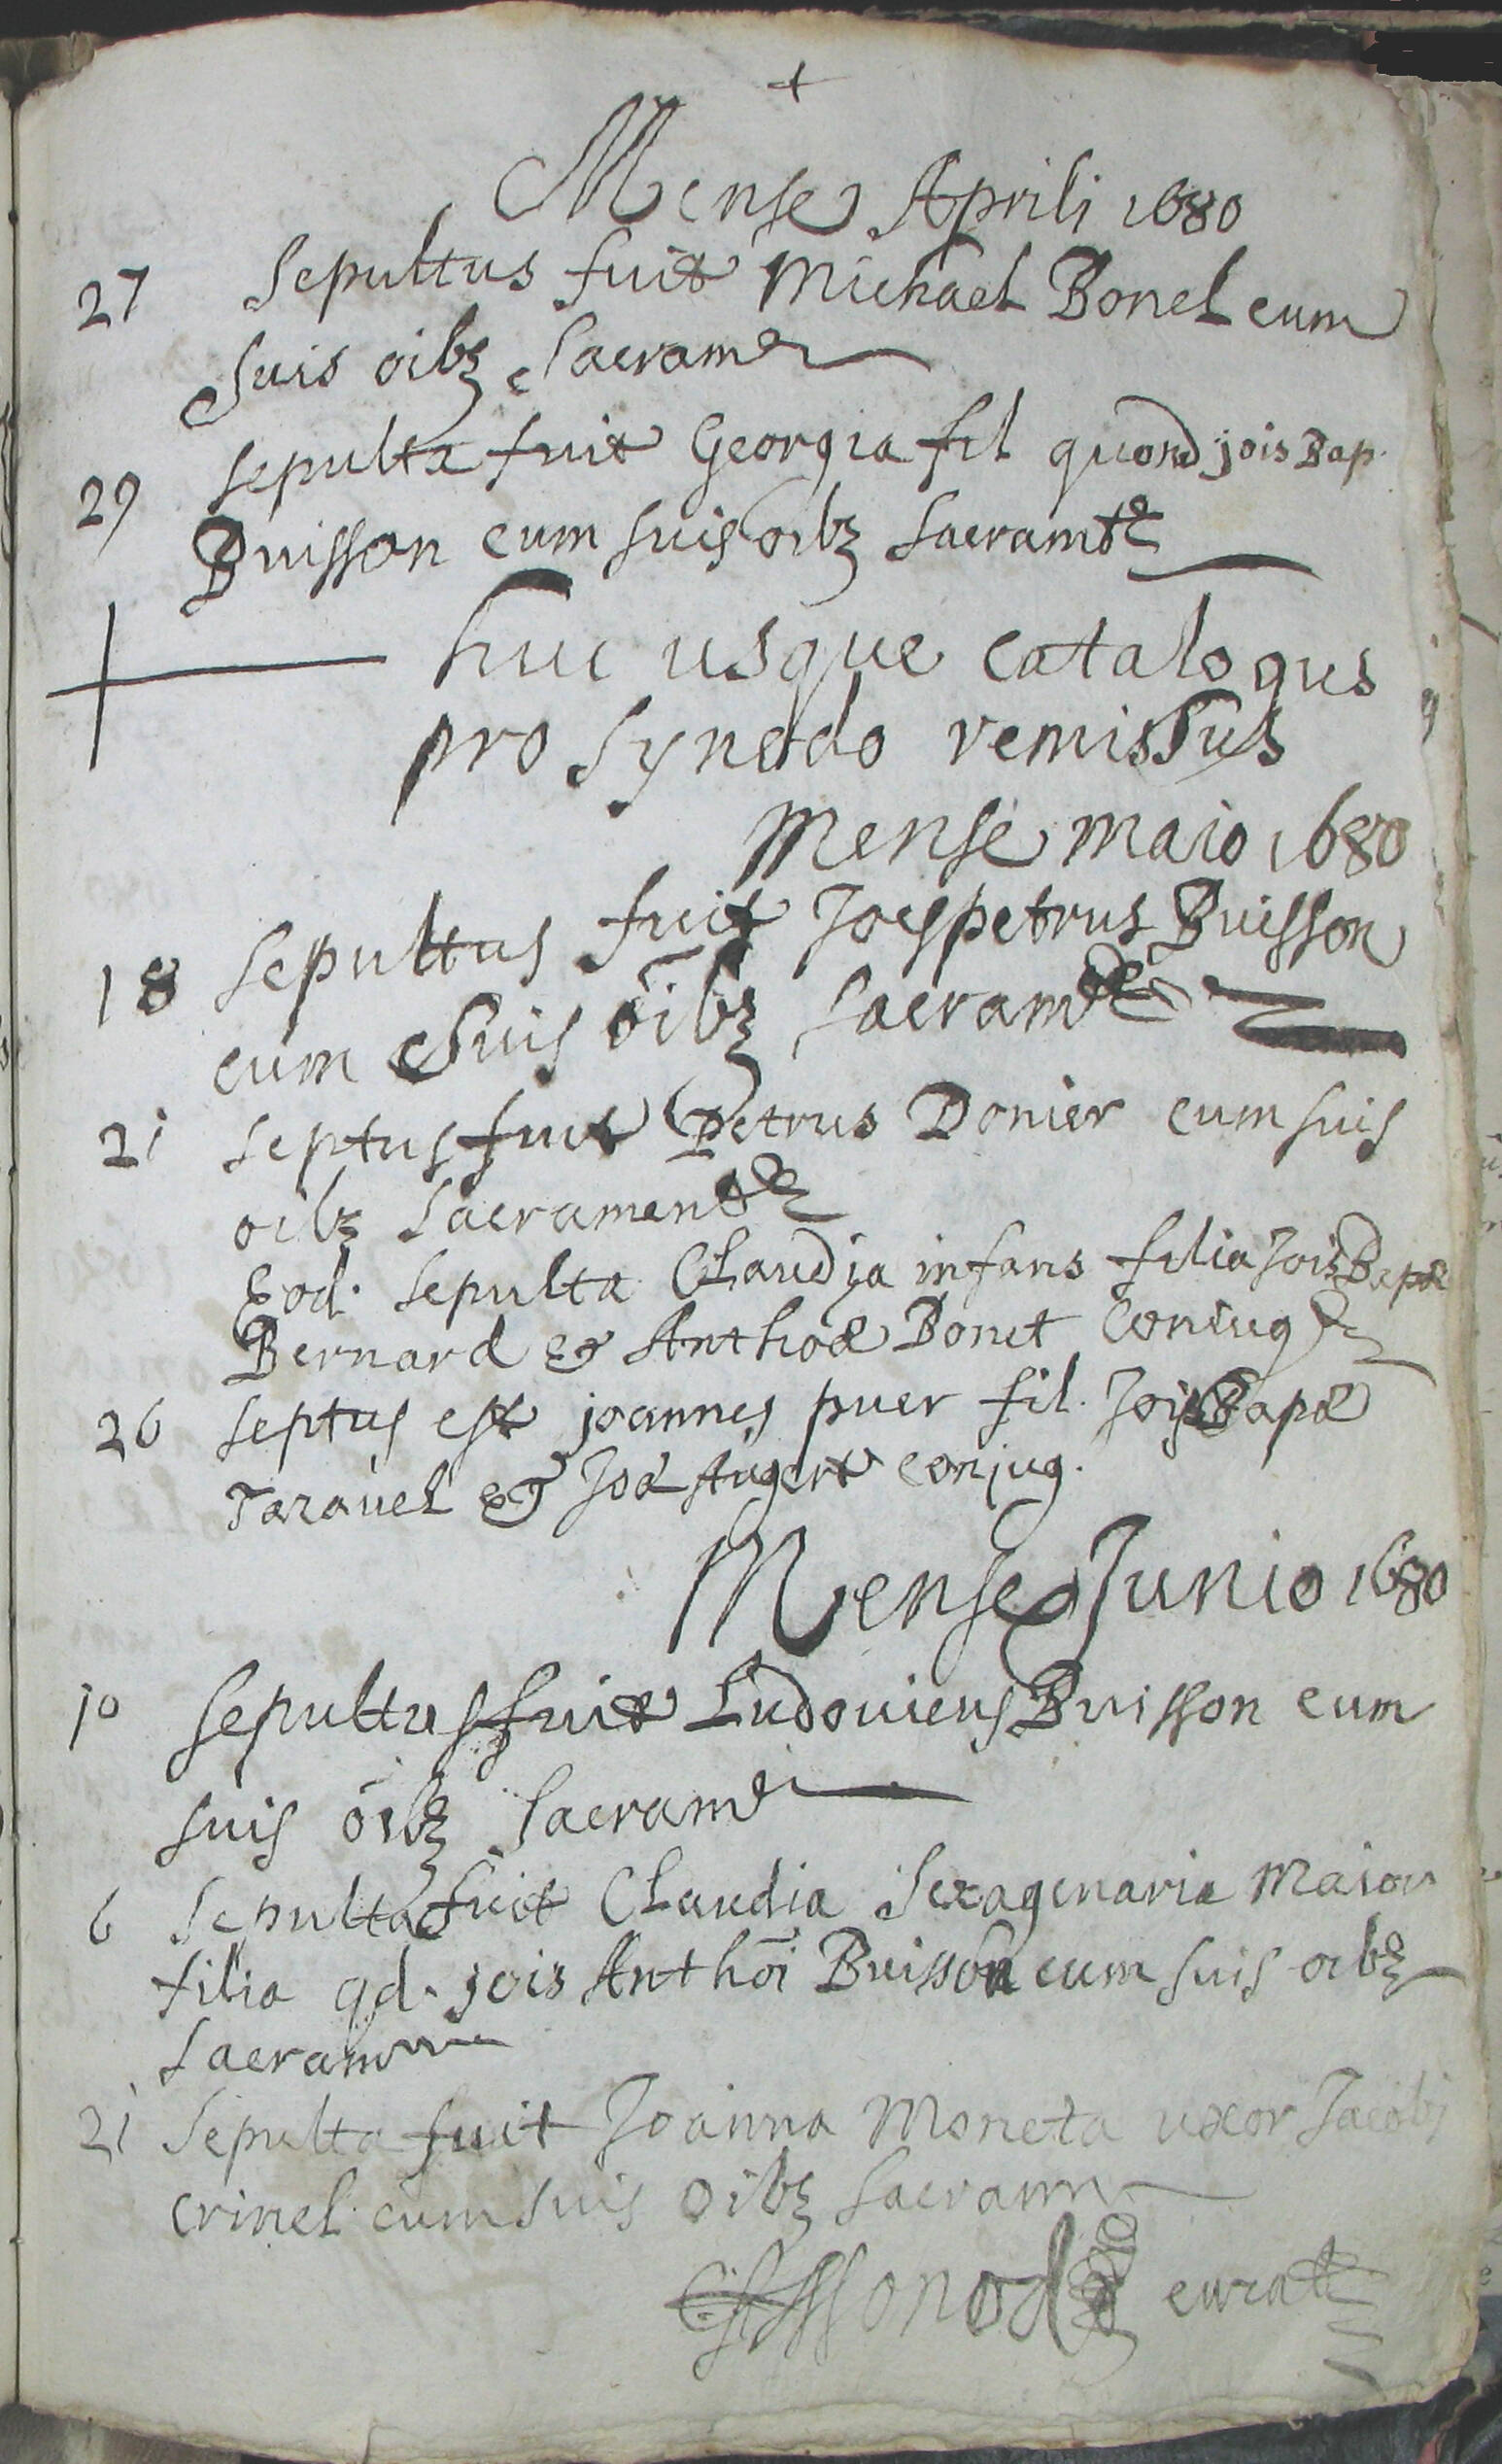 +
Mense Aprili 1680
27 Sepultus fuit Michael Bonel cum
suis oibz Sacram
29 sepulta fuit Georgia fil quond jois Bap.
Buisson cum suis oibz sacramt
huc usque catalogus
pro synodo remissus
Mense maio 1680
18 sepultus fuit Joes petrus Buisson
cum suis õibz sacram
21 septus fuit Petrus Donier cum suis
oibz sacrament
Eod. sepulta Claudia infans filia Jois Bapæ
Bernard & Anthoæ Bonet coniug
26 septus est joannes puer fil. Jois Bapæ
Taravel & Joæ Augert conjug.
Mense Junio 1680
10 sepultus fuit Ludovicus Buisson cum
suis õibz sacram
6 Sepulta fuit Claudia Sexagenaria maior
filia qd. jois Anthoi Buisson cum suis oibz
sacram
21 Sepulta fuit Joanna Moneta uxor Jacobi
crinel cum suis oibz sacram
curat